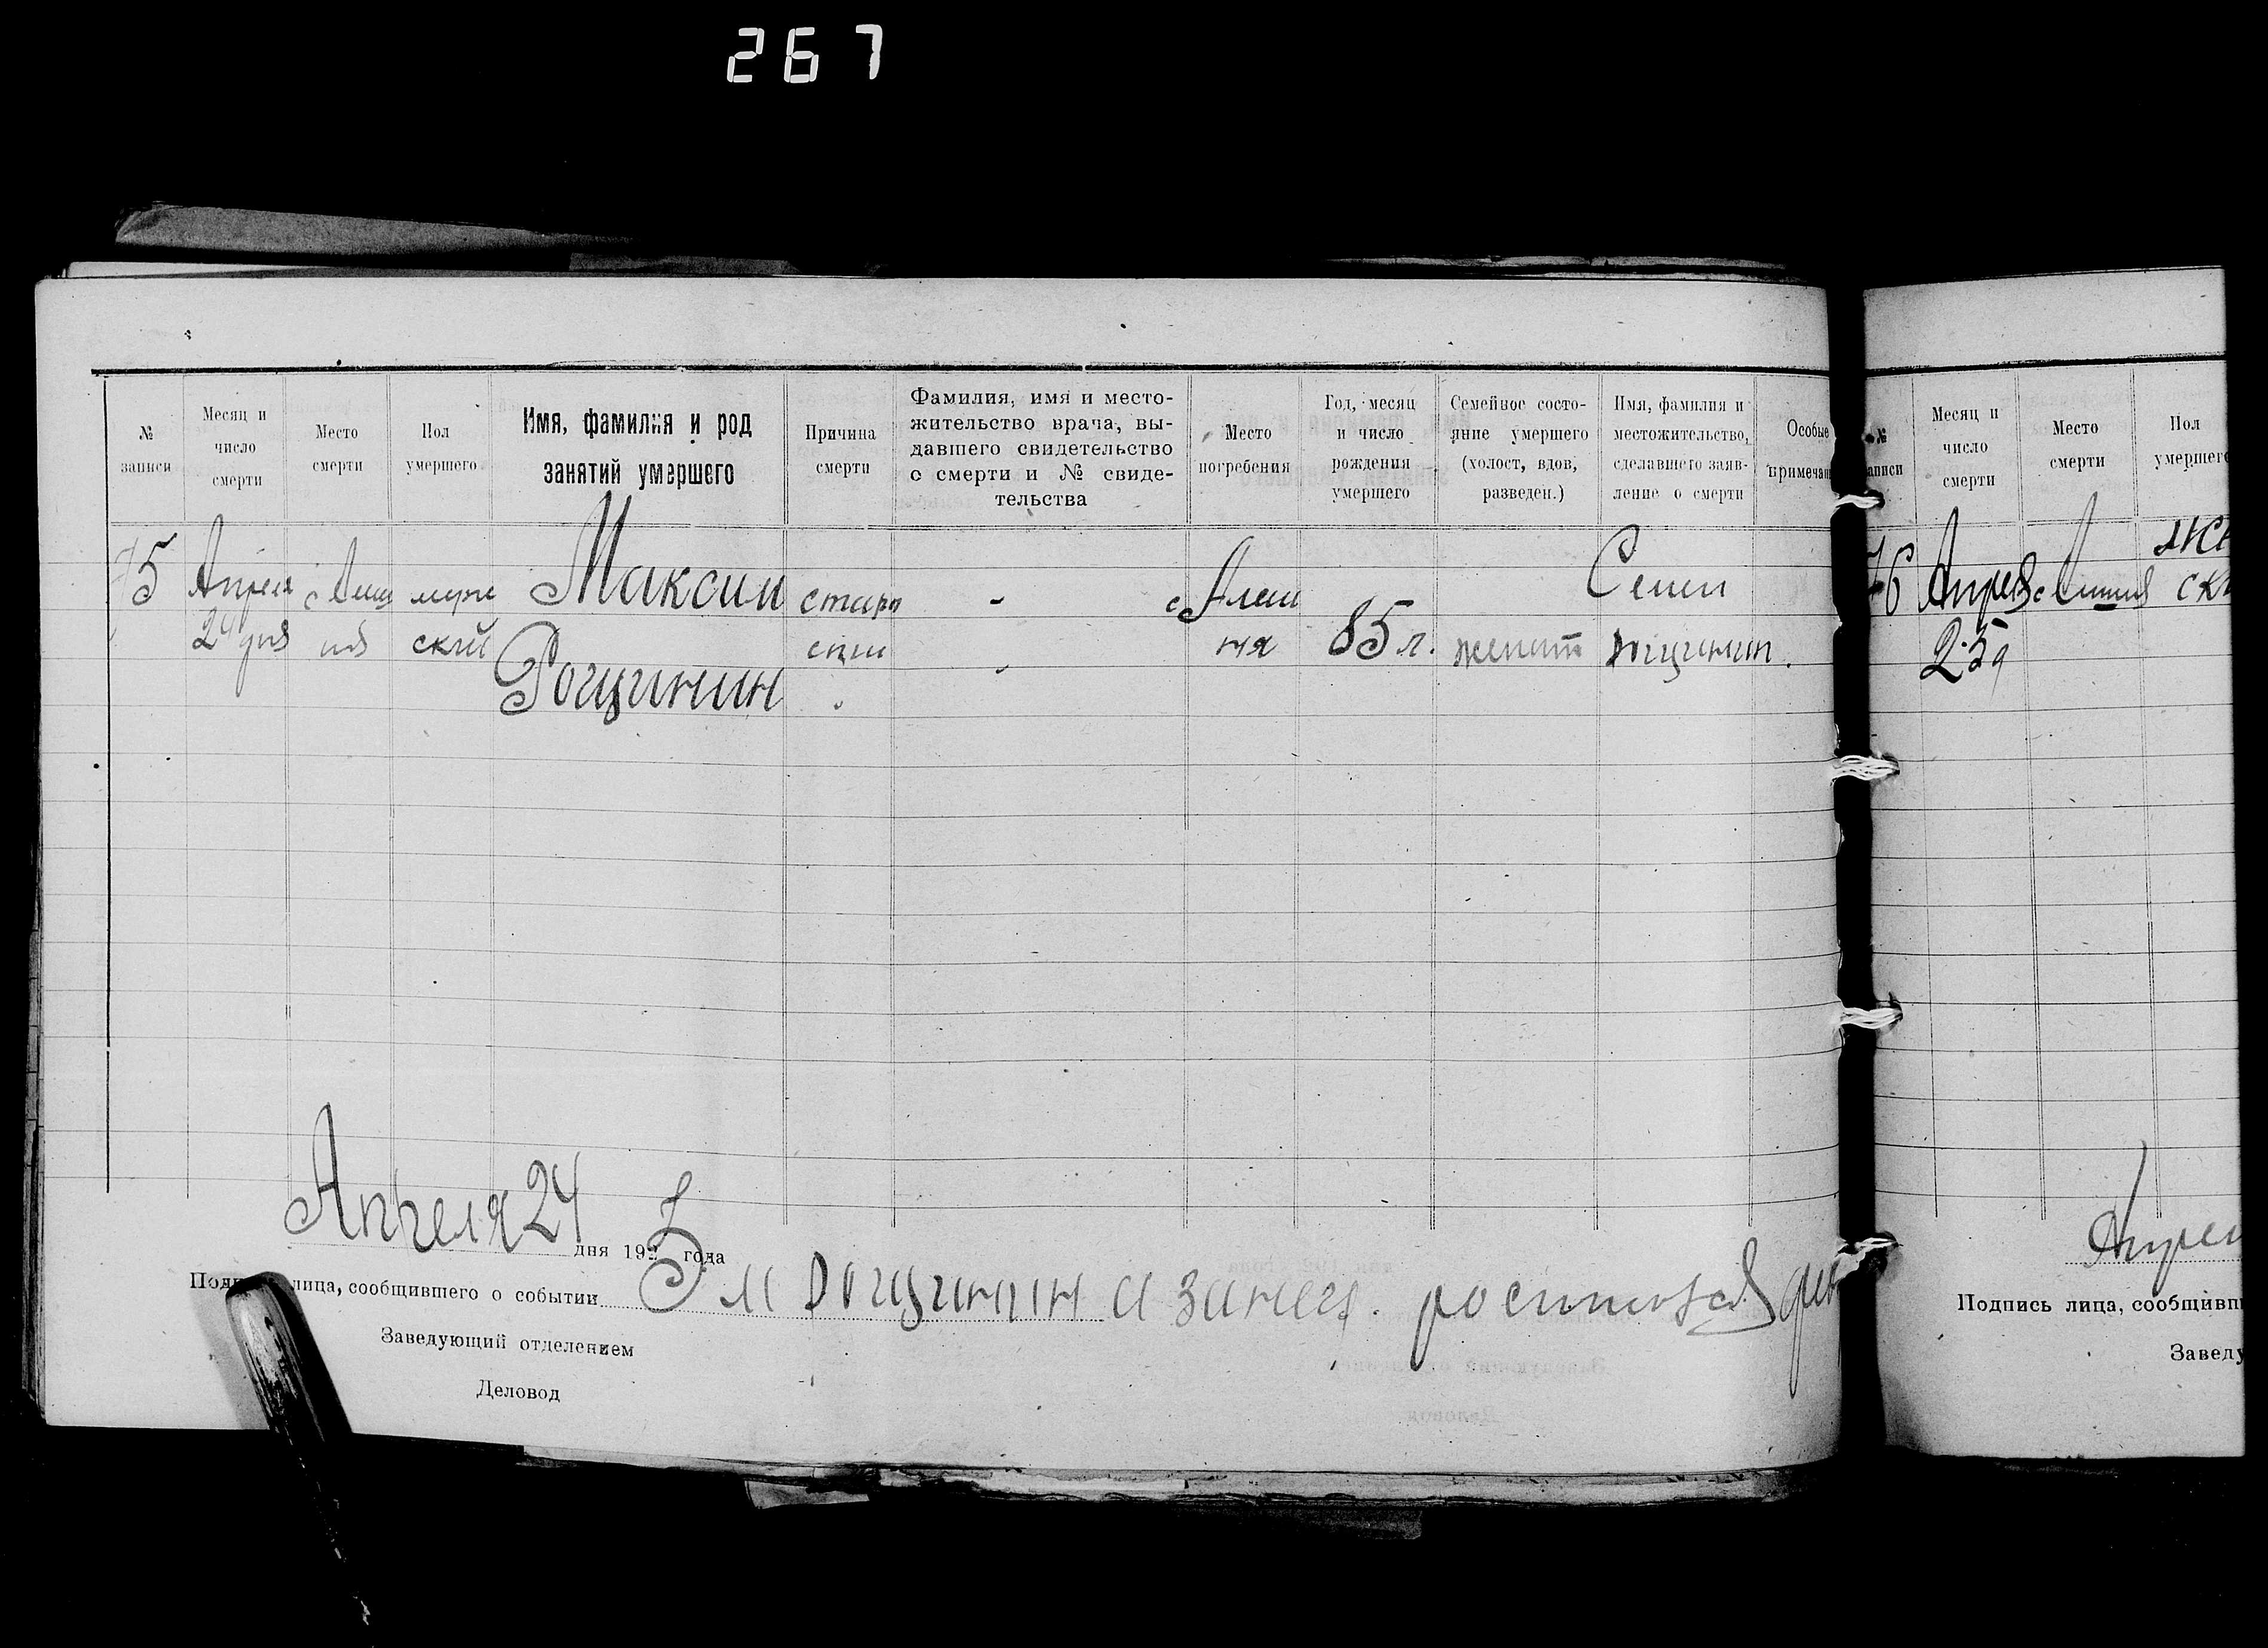 267
№ записи
Месяц и число смерти
Место смерти
Пол умершего
Имя, фамилия и род занятий умершего
Причина смерти
Фамилия, имя и место-
жительство врача, вы-
давшего свидетельство
о смерти и № свиде-
тельства
Место погребения
Год, месяц и число рождения умершего
Семейное состо-
яние умершего
(холост, вдов,
разведен.)
Имя, фамилия и
местожительство,
сделавшего заяв-
ление о смерти
Особые примечан
75 Апреля Максим стар - Семен
24 дня ский сти 85 л. женат Рощинин.
Рощинин
Апреля 24 дня 1925 года
Подп лица, сообщившего о событии м Рощинин а занего
Заведующий отделением
Деловод
№ аписи
Месяц и число смерти
Место смерти
Пол умершего
76 Апреля
25
Апрел
Подпись лица, сообщивш
Заведу